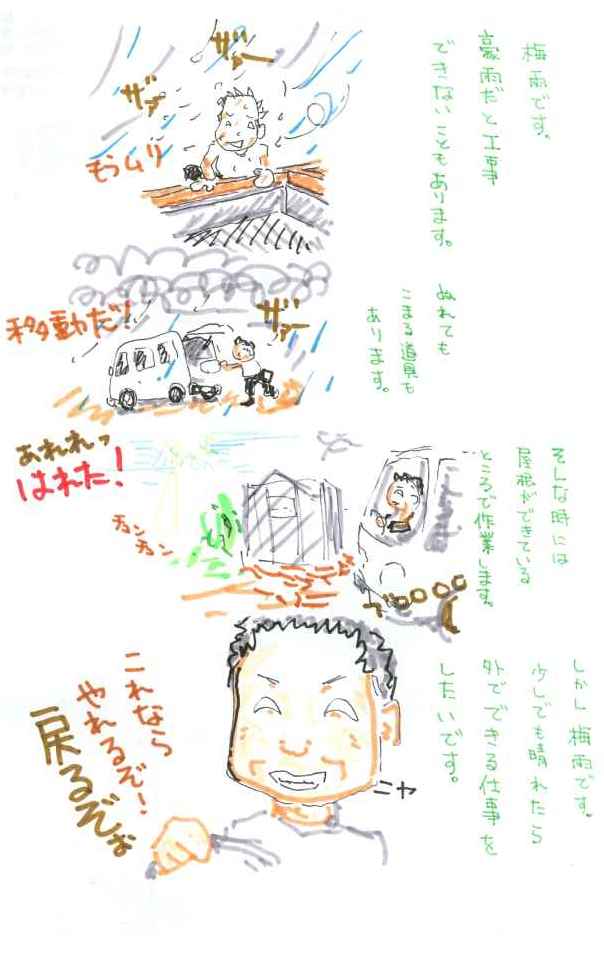 梅雨です。
豪雨だと工事
できないこともあります。
ザァー
ザァー
もうムリ
ぬれても
こまる道具も
あります。
ザァー
移動だ！
そんな時には
屋根ができている
ところで作業します。
あれれっ
はれた！
チュン
チュン
ブロロロロ
しかし梅雨です。
少しでも晴れたら
外でできる仕事を
したいです。
ニヤ
これなら
やれるぞ！
戻るぞぉ